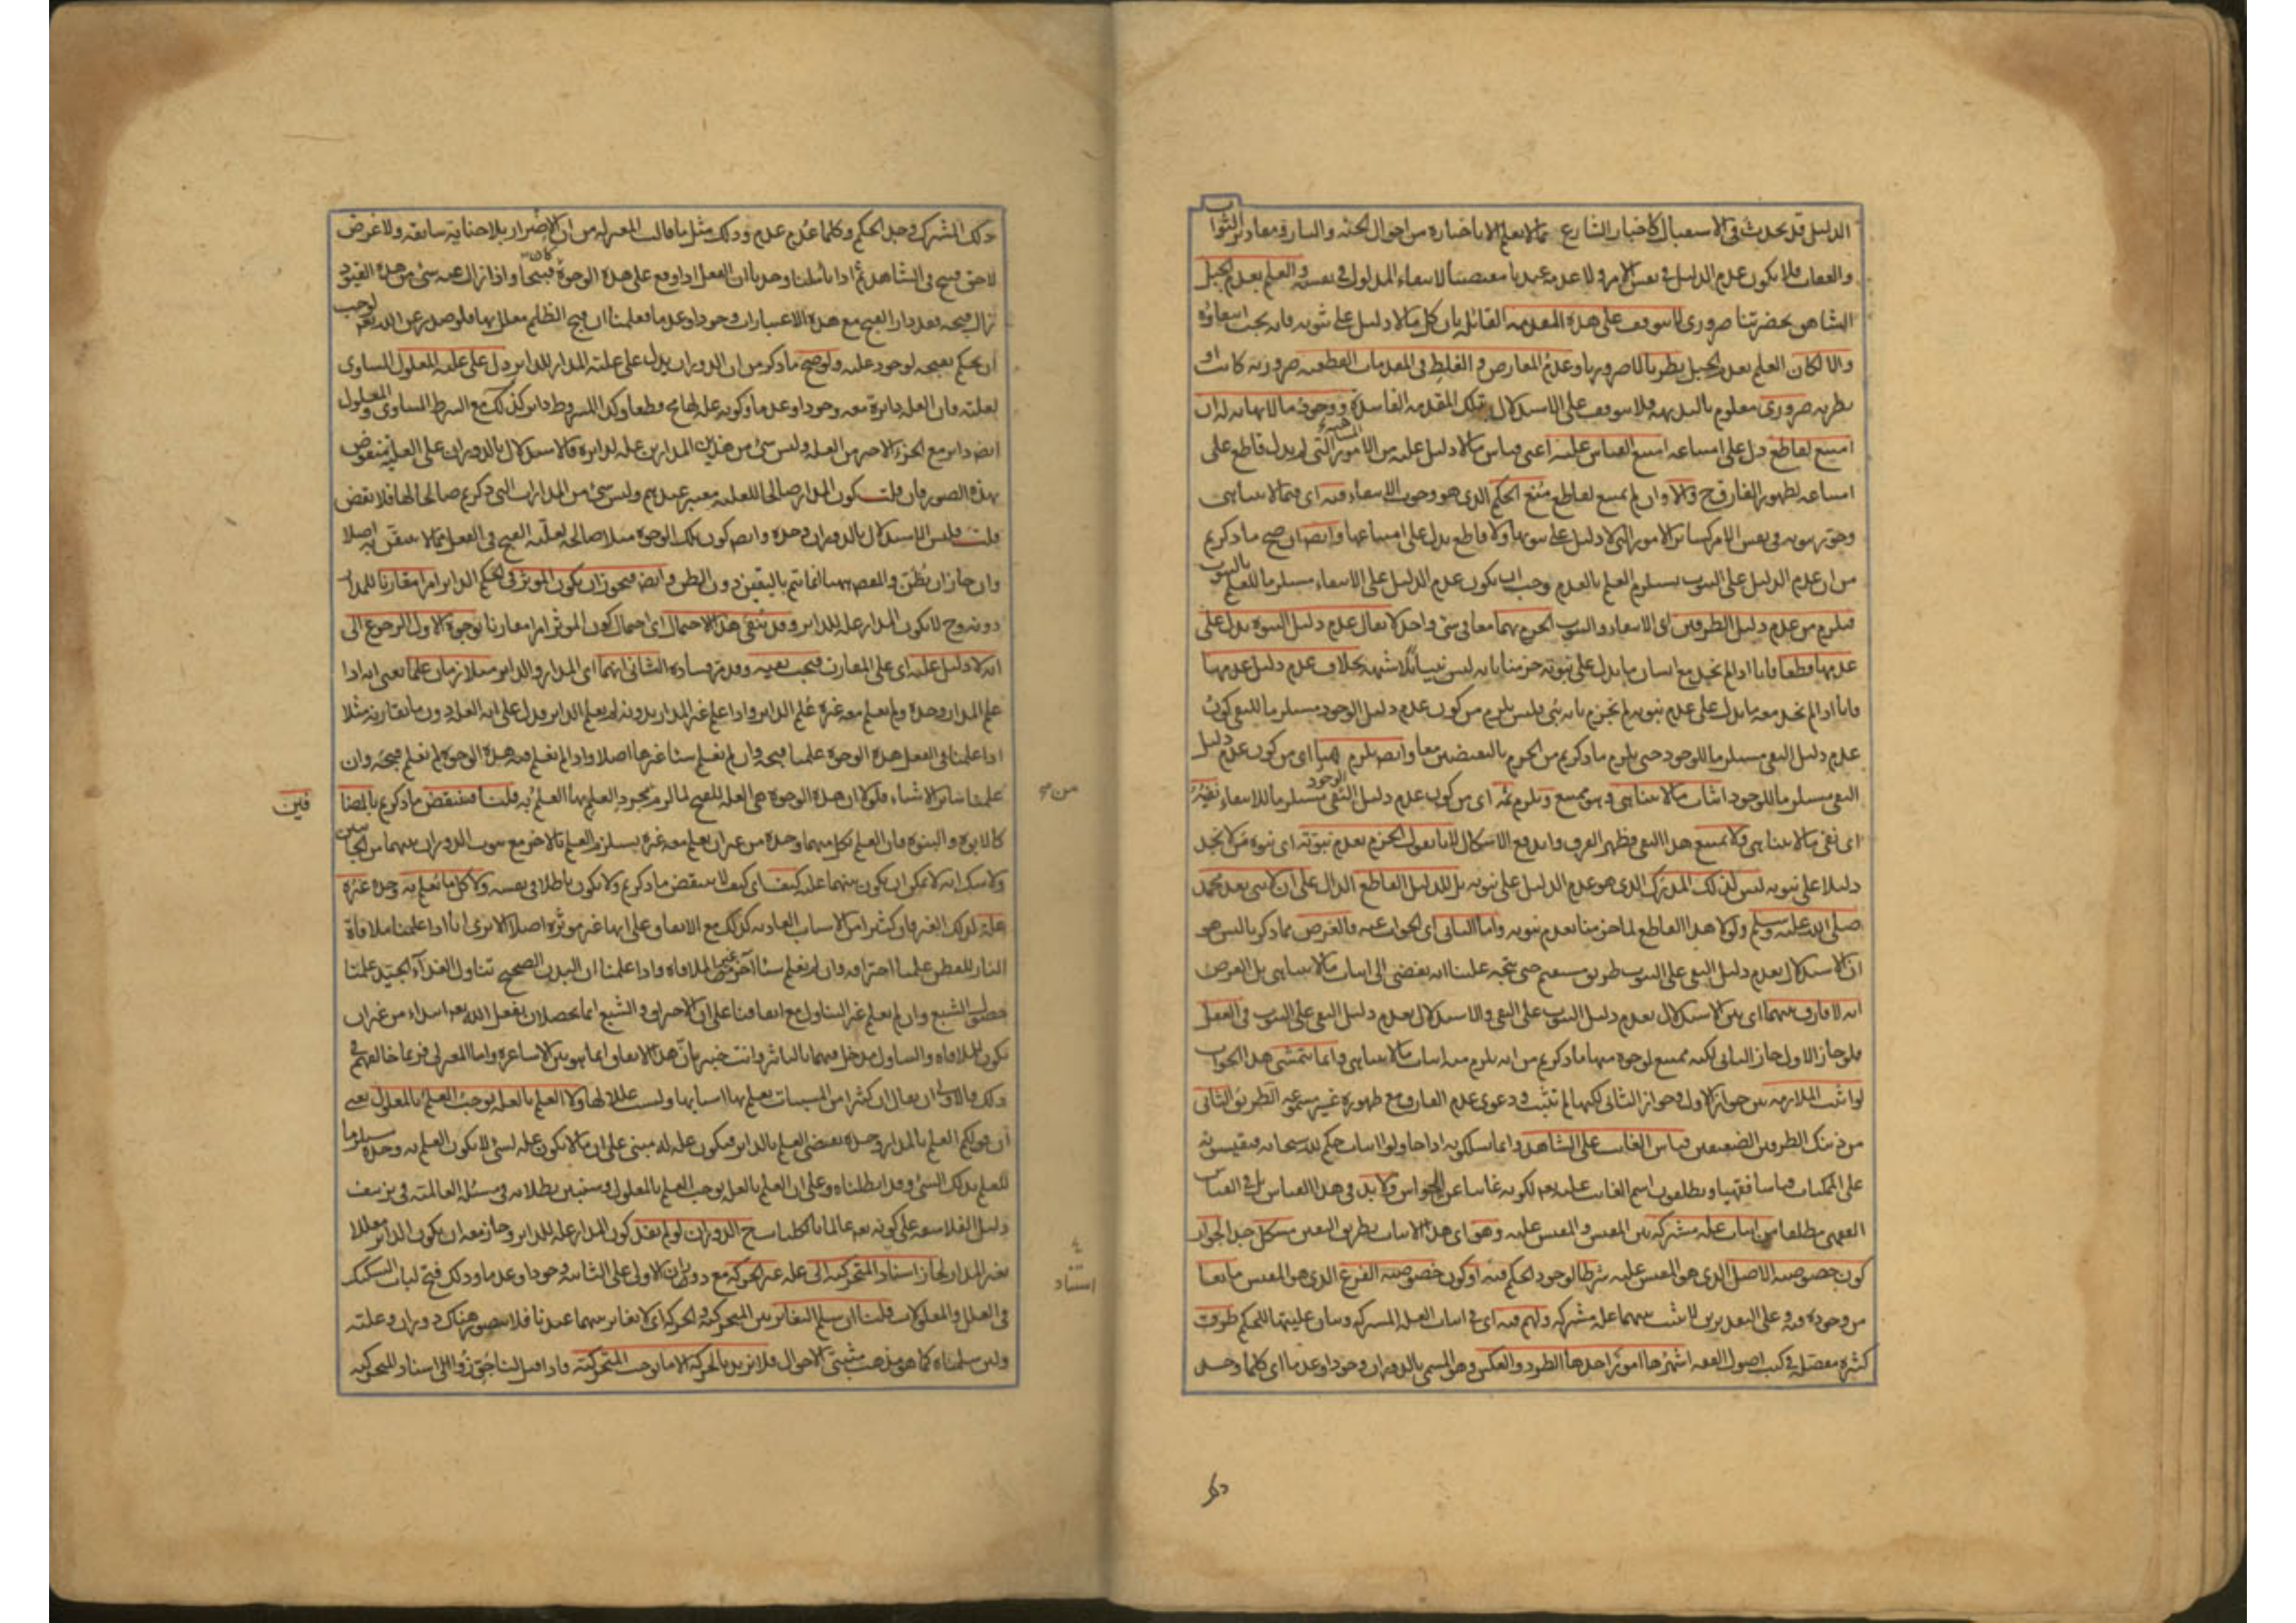 الدليل قد يحدث في الاستقبال كاخبار الشارع مما لا يعلم الا باخباره من احوال الجنة والنار ومقادير الثواب
والعقاب فلا يكون عدم الدليل في نفس الامر ولا عدمه عندنا مقتضيا لانتفاء المدلول في نفسه والعلم بعدم الجبل
الشاهق بحضرتنا ضروري لا يتوقف على هذه المقدمة القائلة بان كل ما لا دليل على ثبوته فانه يجب انتفاؤه
والا لكان العلم بعدم الجبل نظريا لا ضروريا وعدم المعارض والغلط في المقدمات القطعية ضرورية كانت او
نظرية ضروري معلوم بالبديهة فلا يتوقف على الاستدلال بتلك المقدمة الفاسدة ووجود ما لا نهاية له ان
امتنع لقاطع دل على امتناعه امتنع القياس عليه اعني قياس ما لا دليل عليه من الامور التي لم يدل قاطع على
امتناعه لظهور الفارق ح والا وان لم يمتنع لقاطع منع الحكم الذي هو وجوب الانتفاء فيه اي فيما لا يتناهى
وجوز ثبوته في نفس الامر كسائر الامور التي لا دليل على ثبوتها ولا قاطع يدل على امتناعها وايضا ان صح ما ذكرتم
من ان عدم الدليل على الثبوت يستلزم العلم بالعدم وجب ان يكون عدم الدليل على الانتفاء مستلزما للعلم بالثبوت
فيلزم من عدم دليل الطرفين اي الانتفاء والثبوت الجزم بهما معا في شيء واحد لا يقال عدم دليل النبوة يدل على
عدمها قطعا فانا اذا لم نجد مع انسان ما يدل على نبوته جزمنا بانه ليس نبيا بلا شبهة بخلاف عدم دليل عدمها
فانا اذا لم نجد معه ما يدل على عدم نبوته لم نجزم بانه نبي فليس يلزم من كون عدم دليل الوجود مستلزما للنفي كون
عدم دليل النفي مستلزما للوجود حتى يلزم ما ذكرتم من الجزم بالنقيضين معا وايضا يلزم هنا اي من كون عدم دليل
النفي مستلزما للوجود اثبات ما لا يتناهى وهو ممتنع ويلزم ثمه اي من كون عدم دليل الوجود مستلزما للانتفاء نفيه
اي نفي ما لا يتناهى ولا يمتنع هذا النفي فظهر الفرق واندفع الاشكال لانا نقول الجزم بعدم نبوته اي نبوة من لا نجد
دليلا على نبوته ليس لذلك المدرك الذي هو عدم الدليل على نبوته بل للدليل القاطع الدال على ان لا نبي بعد محمد
صلى الله عليه وسلم ولولا هذا القاطع لما جزمنا بعدم نبوته واما الثاني اي الجواب عنه فالغرض مما ذكرنا ليس هو
ان الاستدلال بعدم دليل النفي على الثبوت طريق مستقيم حتى يتجه علينا انه يفضي الى اثبات ما لا يتناهى بل الغرض
انه لا فارق بينهما اي بين الاستدلال بعدم دليل الثبوت على النفي والاستدلال بعدم دليل النفي على الثبوت في العقل
فلو جاز الاول جاز الثاني لكنه ممتنع لوجوه منها ما ذكرتم من انه يلزم منه اثبات ما لا يتناهى وانما يتمشى هذا الجواب
لو اثبت الملازمة بين جواز الاول وجواز الثاني لكنها لم تثبت ودعوى عدم الفارق مع ظهوره غير مسموعة الطريق الثاني
من ذينك الطريقين الضعيفين قياس الغائب على الشاهد وانما يسلكونه اذا حاولوا اثبات حكم لله سبحانه فيقيسونه
على الممكنات قياسا فقهيا ويطلقون اسم الغائب عليه تعالى لكونه غائبا عن الحواس ولا بد في هذا القياس بل في القياس
الفقهي مطلقا من اثبات علة مشتركة بين المقيس والمقيس عليه وهو اي هذا الاثبات بطريق اليقين مشكل جدا لجواز
كون خصوصية الاصل الذي هو المقيس عليه شرطا لوجود الحكم فيه او كون خصوصية الفرع الذي هو المقيس مانعا
من وجوده فيه وعلى التقديرين لا يثبت بينهما علة مشتركة ولهم فيه اي في اثبات العلة المشتركة وبيان عليتها للحكم طرق
كثيرة مفصلة في كتب اصول الفقه اشهرها امور احدها الطرد والعكس وهو المسمى بالدوران وجودا وعدما اي كلما وجد
ذلك المشترك وجد الحكم وكلما عدم عدم وذلك مثل ما قالت المعتزلة من ان الاضرار بلا جناية سابقة ولا عوض
لاحق قبيح في الشاهد ثم اذا تاملنا وجدنا ان الفعل اذا وقع على هذه الوجوه كان قبيحا واذا زال عنه شيء من هذه القيود
زال قبحه فقد دار القبح مع هذه الاعتبارات وجودا وعدما فعلمنا ان قبح الظلم معلل بها فلو صدر عن الله تعالى لوجب
ان يحكم بقبحه لوجود علته ولو صح ما ذكر من ان الدوران يدل على علية المدار للدائر دل على علية المعلول المساوي
لعلته فان العلة دائرة معه وجودا وعدما وكونه علة لها مح قطعا وكذا المشروط دائر كذلك مع الشرط المساوي والمعلول
ايضا دائر مع الجزء الاخير من العلة وليس شيء من هذين المدارين علة لدائره فالاستدلال بالدوران على العلية منقوض
بهذه الصور فان قلت كون المدار صالحا للعلية معتبر عندهم وليس شيء من المدارات التي ذكرتم صالحا لها فلا نقض
قلت فليس الاستدلال بالدوران وحده وايضا كون تلك الوجوه مثلا صالحة لعلية القبح في الفعل مما لا يتيقن به اصلا
وان جاز ان يظن والمقصود ههنا انما يتم باليقين دون الظن وايضا فيجوز ان يكون المؤثر في الحكم الدائر امرا مقارنا للمدار
دونه وح لا يكون المدار علة للدائر وقد ينفى هذا الاحتمال اي احتمال كون المؤثر امرا مقارنا بوجوه الاول الرجوع الى
انه لا دليل عليه اي على المقارن فيجب نفيه وقد مر فساده الثاني انهما اي المدار والدائر متلازمان علما يعني انه اذا
علم المدار وحده ولم يعلم معه غيره علم الدائر واذا علم غير المدار بدونه لم يعلم الدائر فدل على انه العلة دون ما يقارنه مثلا
اذا علمنا في الفعل هذه الوجوه علمنا قبحه وان لم نعلم شيئا غيرها اصلا واذا لم نعلم فيه هذه الوجوه لم نعلم قبحه وان
علمنا سائر الاشياء فلولا ان هذه الوجوه هي العلة للقبح لما لزم من مجرد العلم بها العلم به قلنا فينتقض ما ذكرتم بالمضا
فين
كالابوة والبنوة فان العلم بكل منهما وحده من غير ان يعلم معه غيره يستلزم العلم بالاخر مع ثبوت الدوران بينهما من الجانبين
ولا شك انه لا يمكن ان يكون بينهما علية كيف اي كيف لا ينتقض ما ذكرتم ولا يكون باطلا في نفسه ولا كل ما يعلم به وحده غيره
علة لذلك الغير فان كثيرا من الاسباب العادية كذلك مع الاتفاق على انها غير مؤثرة اصلا الا ترى انا اذا علمنا ملاقاة
النار للقطن علمنا احتراقه وان لم نعلم شيئا آخر غير الملاقاة واذا علمنا ان البدن الصحيح تناول الغذاء الجيد علمنا
حصول الشبع وان لم نعلم غير التناول مع اتفاقنا على ان الاحتراق والشبع انما يحصلان بفعل الله تعالى ابتداء من غير ان
يكون للملاقاة والتناول مدخل فيهما بالتاثير وانت خبير بان هذا الاتفاق انما هو بين الاشاعرة واما المعتزلي فربما خالفهم في
ذلك فالاولى ان يقال ان كثيرا من المسببات يعلم بها اسبابها وليست عللا لها ولا العلم بالعلة يوجب العلم بالمعلول يعني
ان قولكم العلم بالمدار وحده يقتضي العلم بالدائر فيكون علة له مبني على ان ما لا يكون علة لشيء لا يكون العلم به وحده مستلزما
للعلم بذلك الشيء وقد ابطلناه وعلى ان العلم بالعلة يوجب العلم بالمعلول وسنبين بطلانه في مسئلة العالمية في تزييف
دليل الفلاسفة على كونه تعالى عالما بالكليات الدوران لو لم يفد كون المدار علة للدائر وجاز معه ان يكون الدائر معللا
بغير المدار لجاز استناد المتحركية الى علة غير الحركة مع دوران الاولى على الثانية وجودا وعدما وذلك فتح لباب التشكيك
في العلل والمعلولات قلنا ان سلم التغاير بين المتحركية والحركة اي لا تغاير بينهما عندنا فلا يتصور هناك دوران وعلية
ولئن سلمناه كما هو مذهب مثبتي الاحوال فلا نريد بالحركة الا ما يوجب المتحركية فاذا قيل لنا جوزوا استناد المتحركية
استناد
ذلك